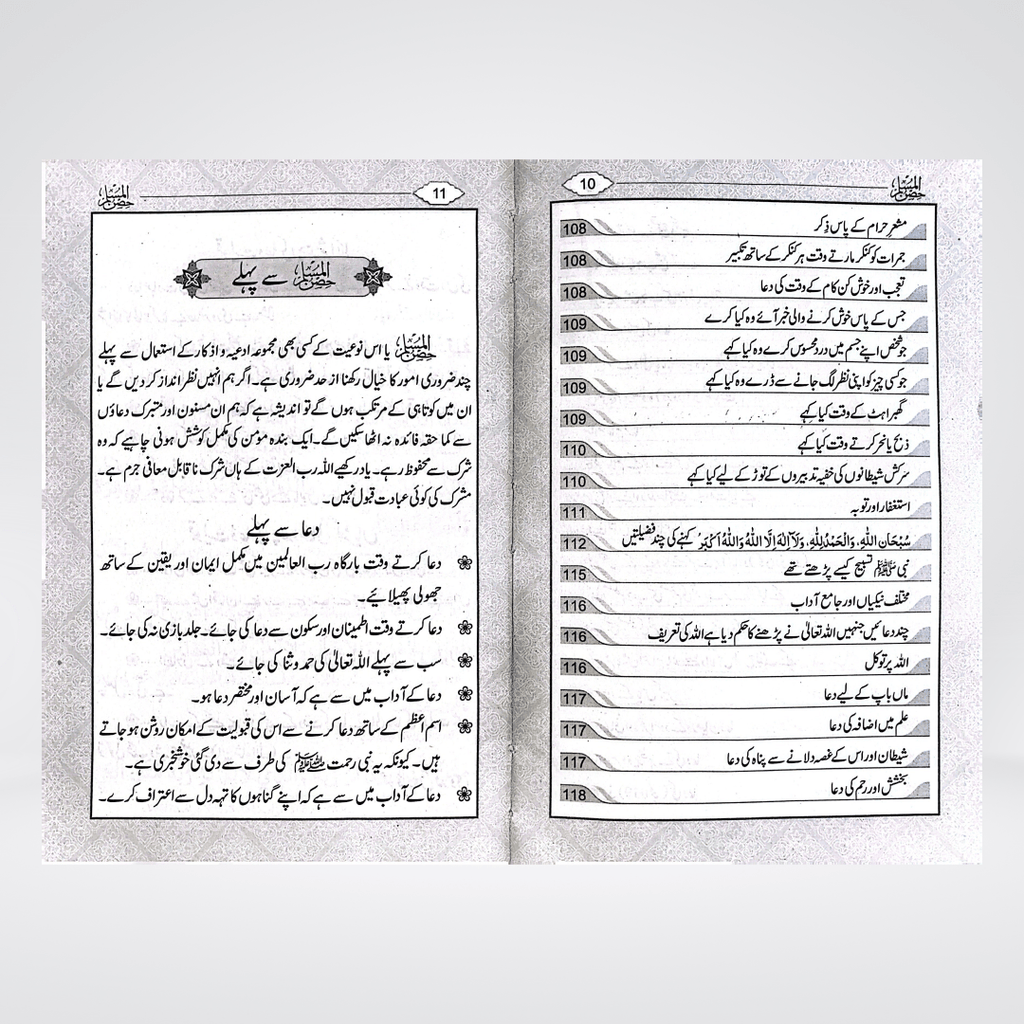 حصن المسلم
10
مشعرِ حرام کے پاس ذِکر 108
جمرات کو کنکر مارتے وقت ہر کنکر کے ساتھ تکبیر 108
تعجب اور خوش کن کام کے وقت کی دعا 108
جس کے پاس خوش کرنے والی خبر آئے وہ کیا کرے 109
جو شخص اپنے جسم میں درد محسوس کرے وہ کیا کہے 109
جو کسی چیز کو اپنی نظر لگ جانے سے ڈرے وہ کیا کہے 109
گھبراہٹ کے وقت کیا کہے 109
ذبح یا نحر کرتے وقت کیا کہے 110
سرکش شیطانوں کی خفیہ تدبیروں کے توڑ کے لیے کیا کہے 110
استغفار اور توبہ 111
سُبْحَانَ اللّٰهِ، وَالْحَمْدُلِلّٰهِ، وَلَآ اِلٰهَ اِلَّا اللّٰهُ وَاللّٰهُ اَكْبَرُ کہنے کی چند فضیلتیں 112
نبی ﷺ تسبیح کیسے پڑھتے تھے 115
مختلف نیکیاں اور جامع آداب 116
چند دعائیں جنہیں اللہ تعالیٰ نے پڑھنے کا حکم دیا ہے اللہ کی تعریف 116
اللہ پر توکل 116
ماں باپ کے لیے دعا 117
علم میں اضافہ کی دعا 117
شیطان اور اس کے غصہ دلانے سے پناہ کی دعا 117
بخشش اور رحم کی دعا 118
11
حصن المسلم
حصن المسلم سے پہلے
حصن المسلم یا اس نوعیت کے کسی بھی مجموعہ ادعیہ و اذکار کے استعمال سے پہلے
چند ضروری امور کا خیال رکھنا از حد ضروری ہے۔ اگر ہم انہیں نظر انداز کر دیں گے یا
ان میں کوتاہی کے مرتکب ہوں گے تو اندیشہ ہے کہ ہم ان مسنون اور متبرک دعاؤں
سے کما حقہ فائدہ نہ اٹھا سکیں گے۔ ایک بندہ مؤمن کی مکمل کوشش ہونی چاہیے کہ وہ
شرک سے محفوظ رہے۔ یاد رکھیے اللہ رب العزت کے ہاں شرک ناقابل معافی جرم ہے۔
مشرک کی کوئی عبادت قبول نہیں۔
دعا سے پہلے
دعا کرتے وقت بارگاہ رب العالمین میں مکمل ایمان اور یقین کے ساتھ
جھولی پھیلائیے۔
دعا کرتے وقت اطمینان اور سکون سے دعا کی جائے۔ جلد بازی نہ کی جائے۔
سب سے پہلے اللہ تعالیٰ کی حمد و ثنا کی جائے۔
دعا کے آداب میں سے ہے کہ آسان اور مختصر دعا ہو۔
اسم اعظم کے ساتھ دعا کرنے سے اس کی قبولیت کے امکان روشن ہو جاتے
ہیں۔ کیونکہ یہ نبی رحمت ﷺ کی طرف سے دی گئی خوشخبری ہے۔
دعا کے آداب میں سے ہے کہ اپنے گناہوں کا تہہ دل سے اعتراف کرے۔